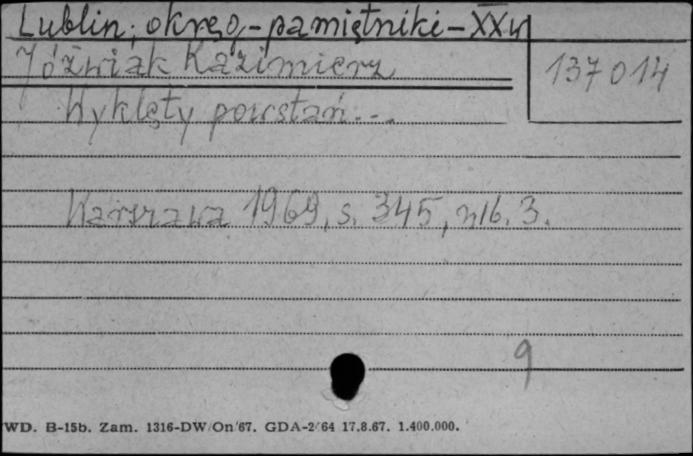 Lublin, okręg, - pamiętniki - XX w
Jóźwiak Kazimierz
137014
Wyklęty powstań...
Warszawa 1969, s. 345, nlb. 3.
9
WD. B-15b. Zam. 1316-DW/On/67. GDA-2/64 17.8.67. 1.400.000.